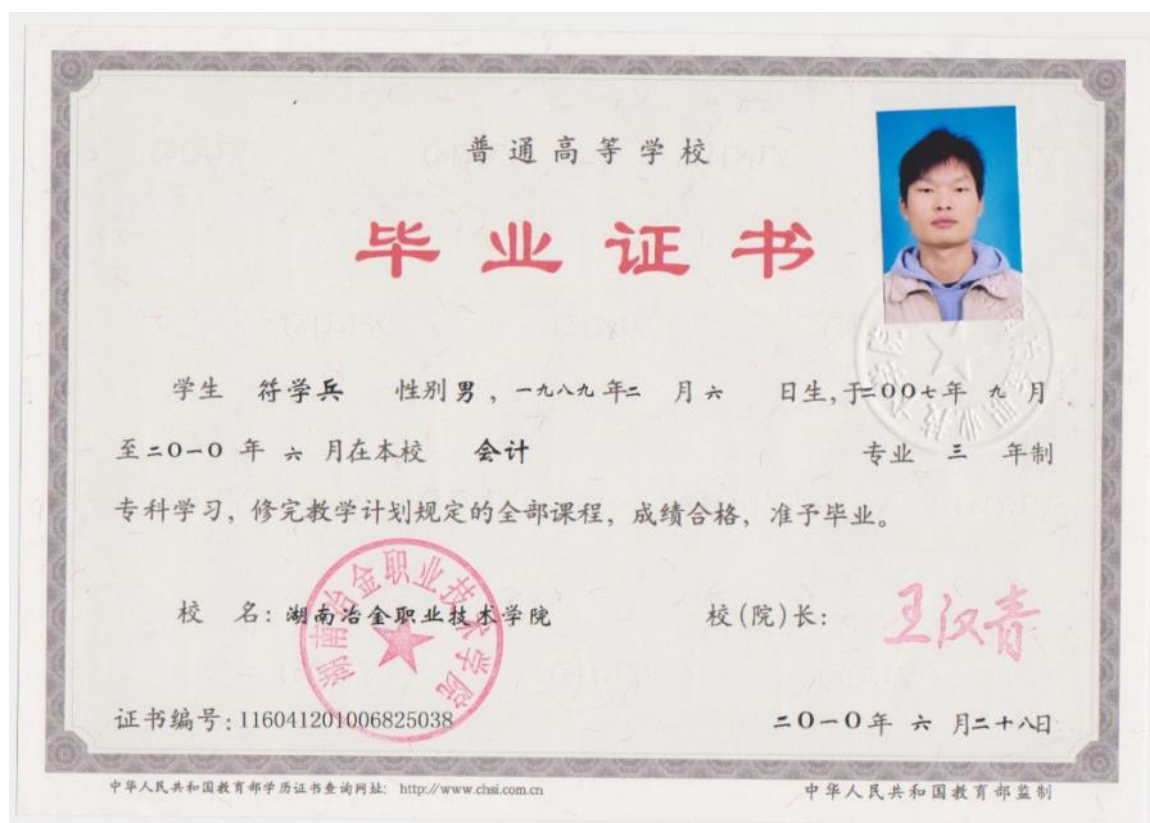 普通高等学校
毕业证书
学生 符学兵 性别 男 , 一九八九 年 二 月 六 日生, 于二00七年 九 月
至二0一0 年 六 月在本校 会计 专业 三 年制
专科学习, 修完教学计划规定的全部课程, 成绩合格, 准予毕业。
湖南冶金职业技术学院
校 名: 湖南冶金职业技术学院 校(院)长: 王汉青
证书编号: 116041201006825038 二0一0年 六 月二十八日
中华人民共和国教育部学历证书查询网址: http://www.chsi.com.cn 中华人民共和国教育部监制